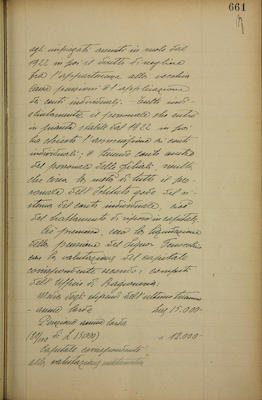 661
agli impiegati assunti in ruolo dal
1922 in poi il diritto di scegliere
fra l'appartenenza alla vecchia
cassa pensioni e l'applicazione
di conti individuali. tutto
il personale che entrò
in pianta stabile dal 1922 in poi
ha chiesto l'ammissione ai conti
individuali; e tenuto conto anche
del personale delle filiali, risulta
che circa la metà di tutto il per-
sonale dell'Istituto gode del si-
stema del conto individuale, cioè
del trattamento di riposo in capitale.
Ciò premesso, ecco la liquidazione
della pensione del signor
con la valutazione del capitale
corrispondente secondo i computi
dell'Ufficio di Ragioneria:
Media degli stipendi dell'ultimo triennio
annue lorde Lire 15.000-
Pensione annua lorda
di L. 15000) " 12.000-
Capitale corrispondente
alla valutazione